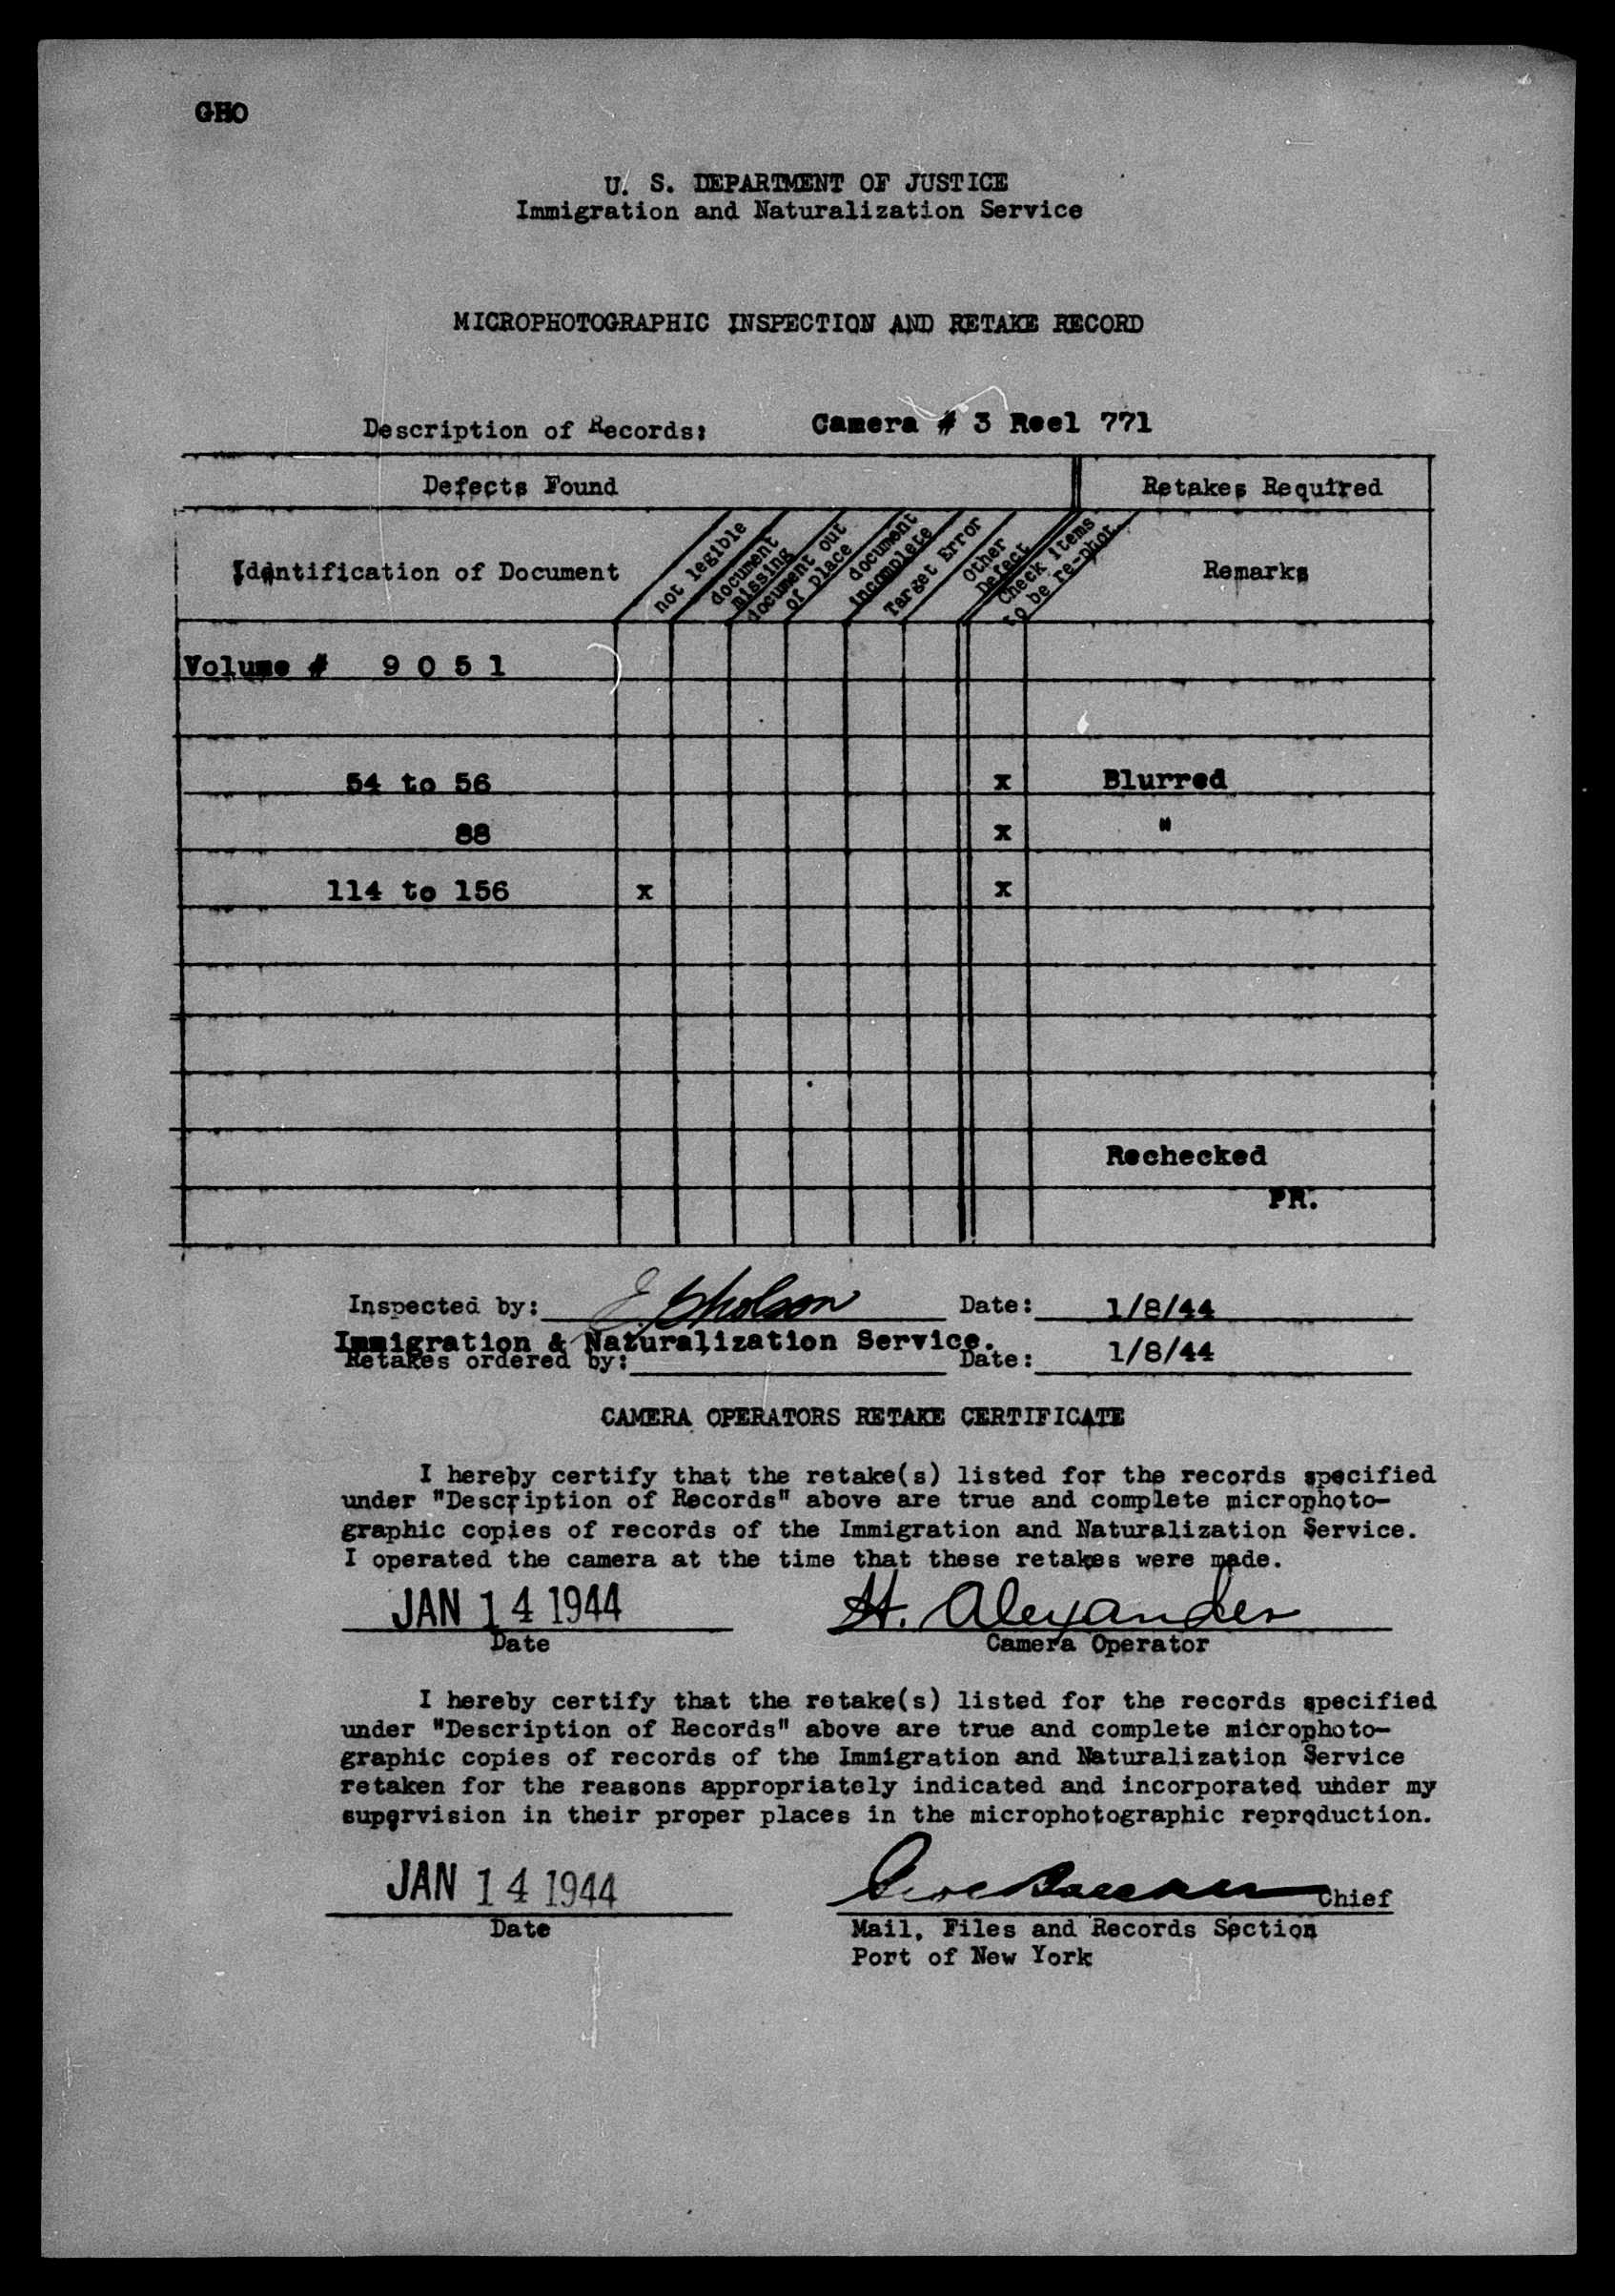 GHO
U. S. DEPARTMENT OF JUSTICE
Immigration and Naturalization Service
MICROPHOTOGRAPHIC INSPECTION AND RETAKE RECORD
Description of Records: Camera # 3 Reel 771
Defects Found Retakes Required
Identification of Document not legible document missing document out of place document incomplete Target Error Other Defect Check items to be re-phot. Remarks
Volume # 9 0 5 1
54 to 56 x Blurred
88 x "
114 to 156 x x
Rechecked
PR.
Inspected by: Date: 1/8/44
Immigration & Naturalization Service.
Retakes ordered by: Date: 1/8/44
CAMERA OPERATORS RETAKE CERTIFICATE
I hereby certify that the retake(s) listed for the records specified
under "Description of Records" above are true and complete microphoto-
graphic copies of records of the Immigration and Naturalization Service.
I operated the camera at the time that these retakes were made.
JAN 14 1944 H. Alexander
Date Camera Operator
I hereby certify that the retake(s) listed for the records specified
under "Description of Records" above are true and complete microphoto-
graphic copies of records of the Immigration and Naturalization Service
retaken for the reasons appropriately indicated and incorporated under my
supervision in their proper places in the microphotographic reproduction.
JAN 14 1944 Chief
Date Mail, Files and Records Section
Port of New York